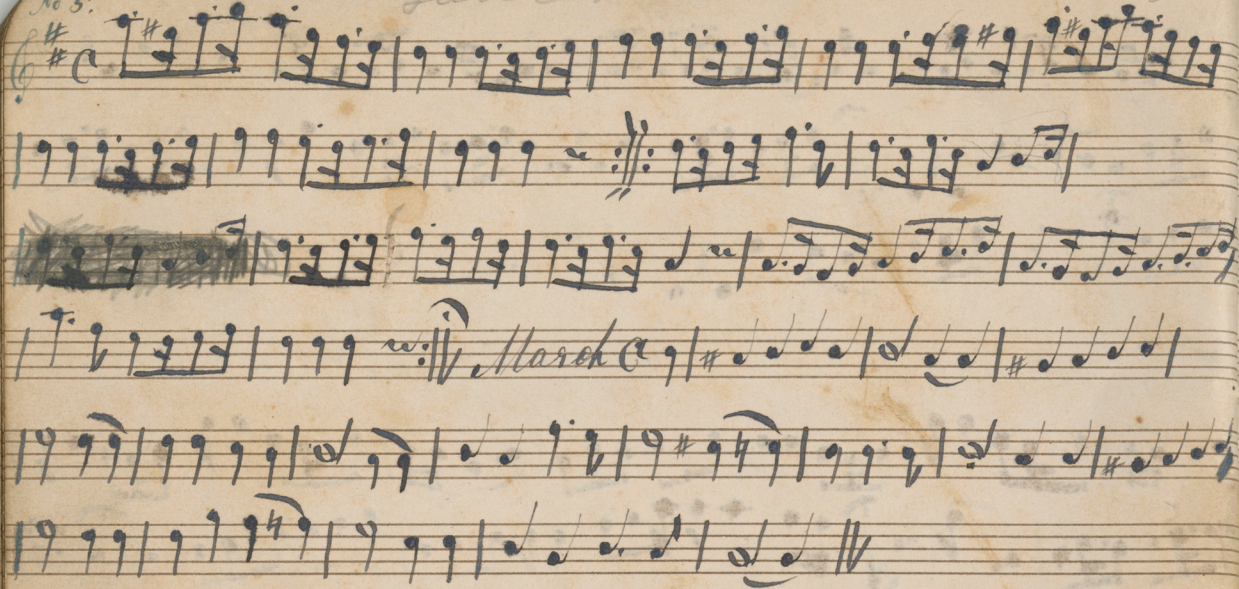 No 5.
March